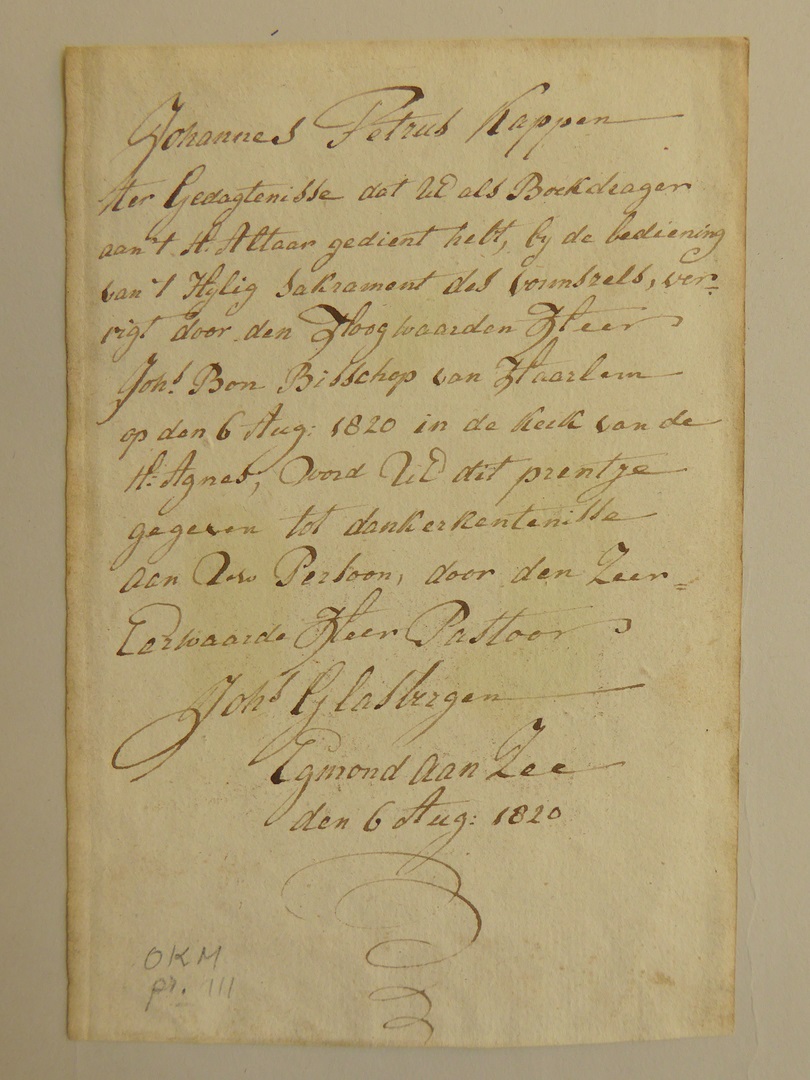 Johannes Petrus Kappen
ter Gedagtenisse dat UE als Boekdrager
aan 't H: Altaar gedient hebt, by de bediening
van 't Hylig Sakrament des vormsels, ver:
rigt door den Hoogwaarden Heer
Johs Bon Bisschop van Haarlem
op den 6 Aug: 1820 in de kerk van de
H: Agnes, Word UE dit prentje
gegeven tot dankerkentenisse
aan Uw Persoon, door den Zeer=
Eerwaarde Heer Pastoor
Johs Glasbergen
Egmond aan Zee
den 6 Aug: 1820
OKM
pr. III